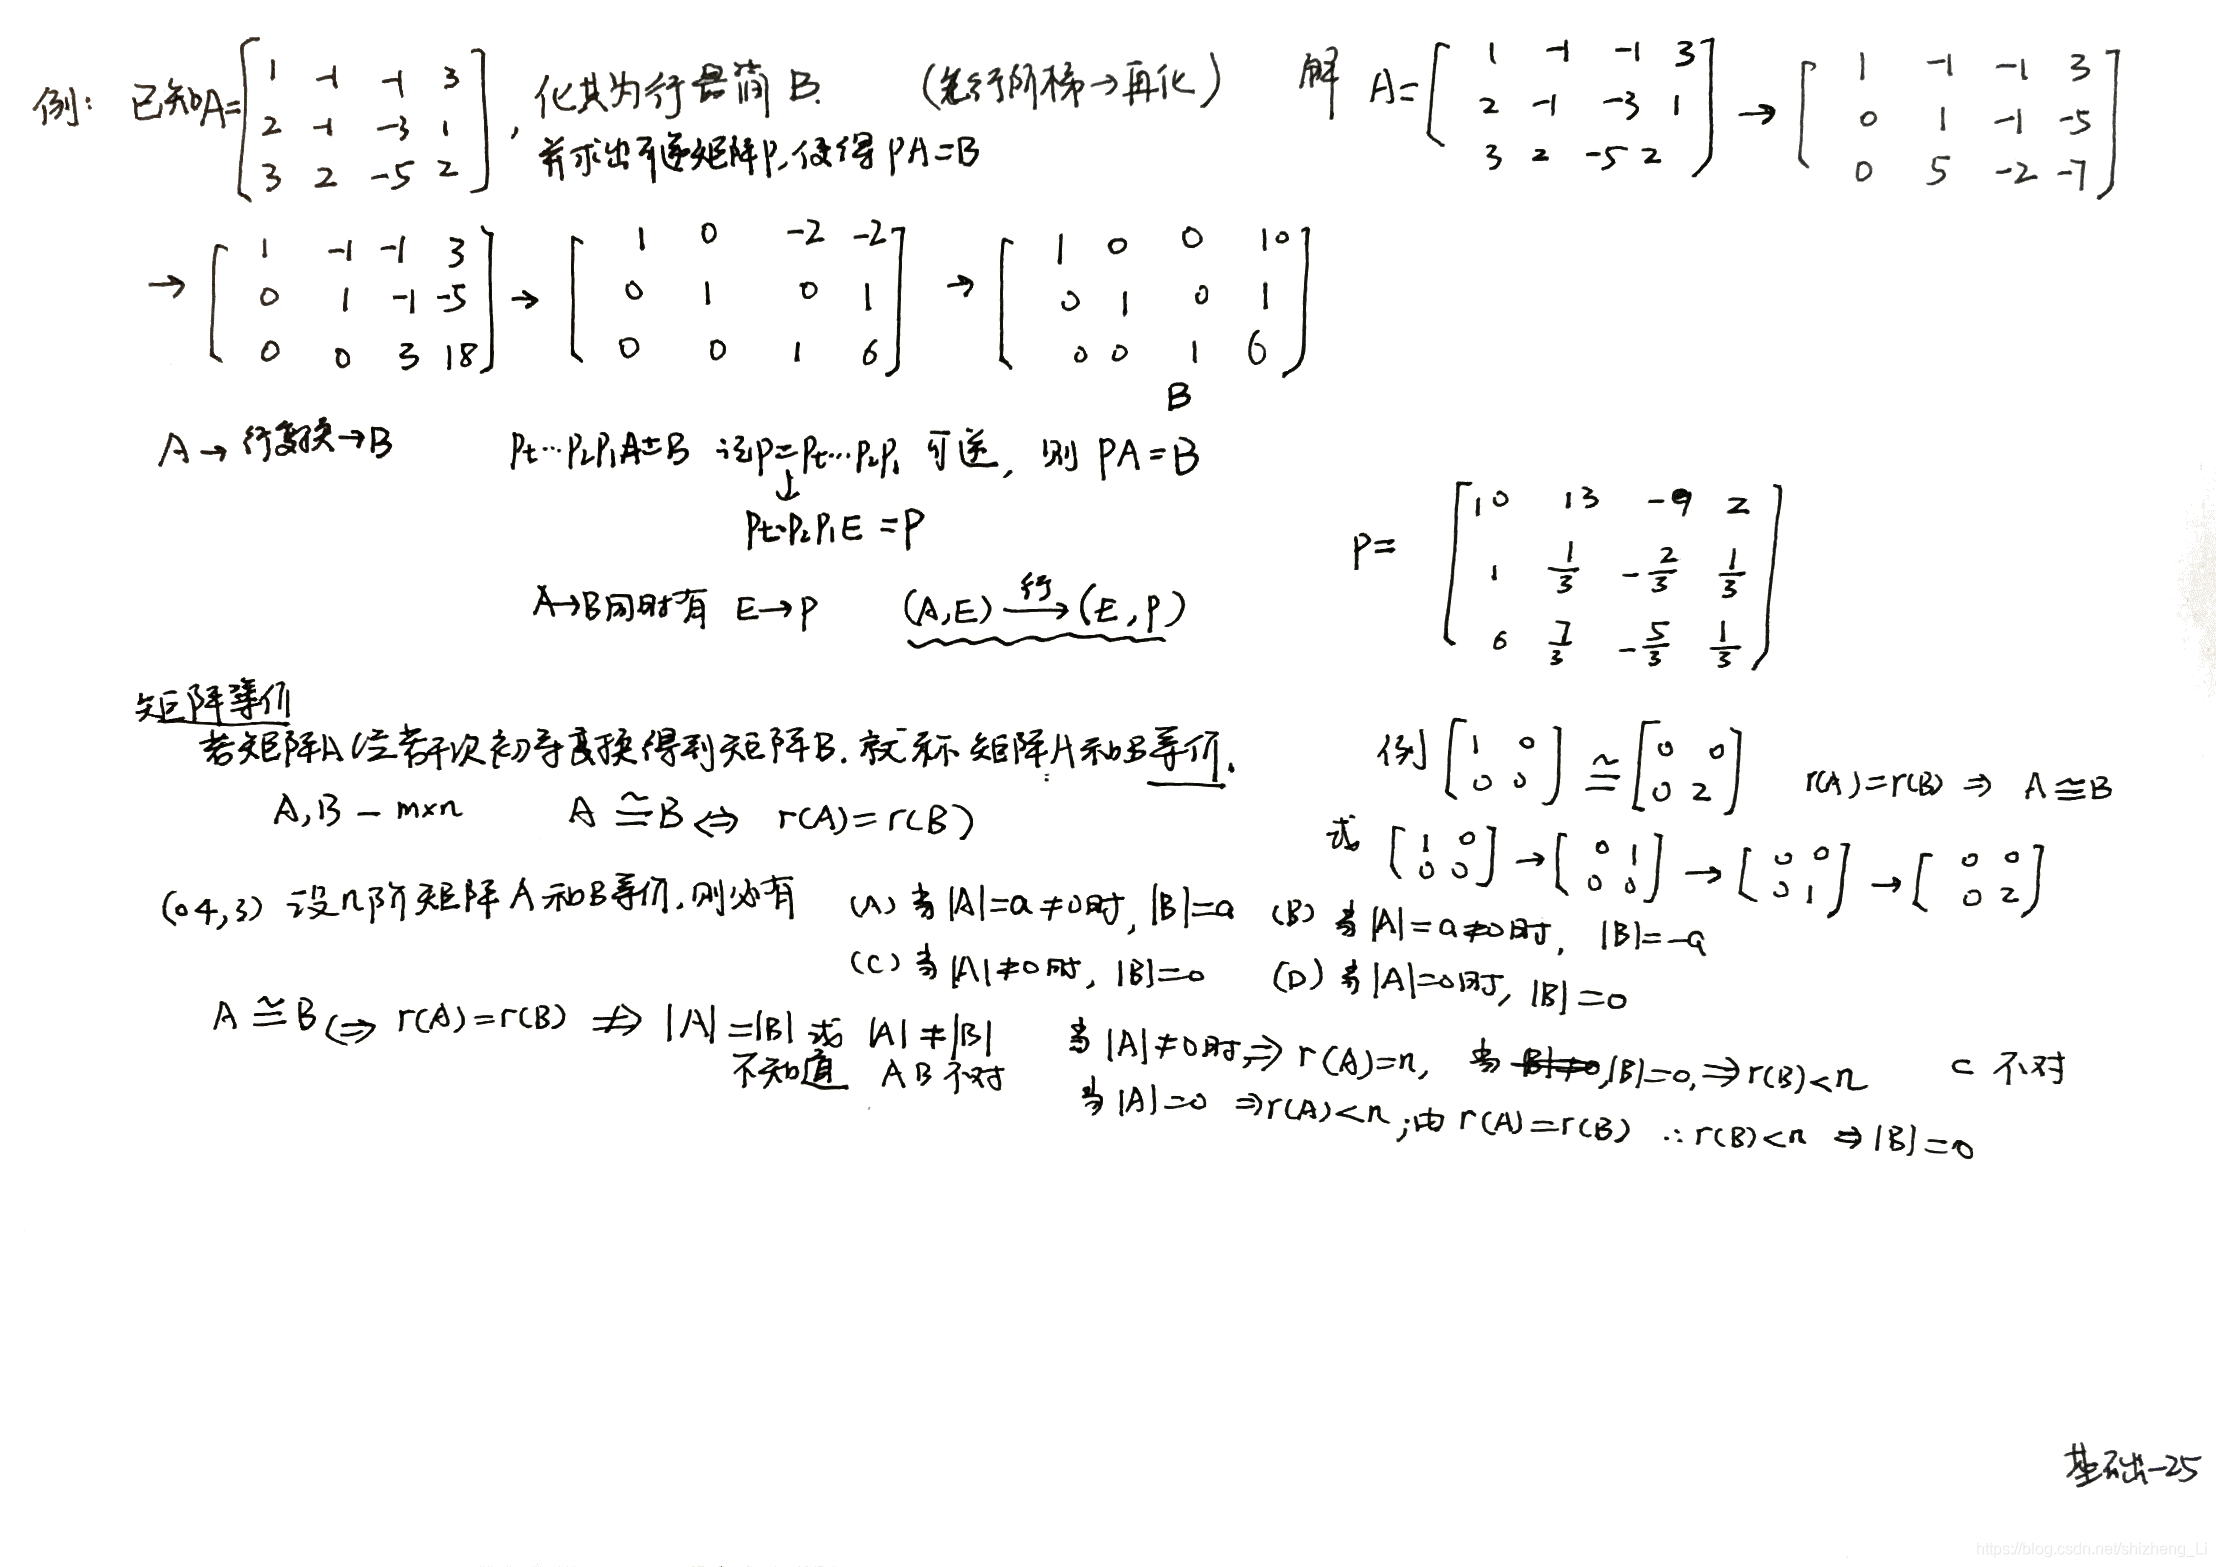 例: 已知A=[1 -1 -1 3; 2 -1 -3 1; 3 2 -5 2], 化其为行最简 B. (先行阶梯→再化)
并求出可逆矩阵P,使得 PA=B
解 A=[1 -1 -1 3; 2 -1 -3 1; 3 2 -5 2] → [1 -1 -1 3; 0 1 -1 -5; 0 5 -2 -7]
→ [1 -1 -1 3; 0 1 -1 -5; 0 0 3 18] → [1 0 -2 -2; 0 1 0 1; 0 0 1 6] → [1 0 0 10; 0 1 0 1; 0 0 1 6]
B
A→行变换→B Pt…P2P1A=B 记P=Pt…P2P1 可逆, 则 PA=B
↓
Pt…P2P1E=P
A→B同时有 E→P (A,E) 行→ (E,P)
P= [10 13 -9 2; 1 1/3 -2/3 1/3; 6 7/3 -5/3 1/3]
矩阵等价
若矩阵A经若干次初等变换得到矩阵B.就称 矩阵A和B等价.
A,B — m×n A≅B ⇔ r(A)=r(B)
例 [1 0; 0 0] ≅ [0 0; 0 2] r(A)=r(B) ⇒ A≅B
或 [1 0; 0 0] → [0 1; 0 0] → [0 0; 0 1] → [0 0; 0 2]
(04,3) 设n阶矩阵A和B等价.则必有 (A) 当|A|=a≠0时, |B|=a (B) 当|A|=a≠0时, |B|=-a
(C) 当|A|≠0时, |B|=0 (D) 当|A|=0时, |B|=0
A≅B ⇔ r(A)=r(B) ⇏ |A|=|B| 或 |A|≠|B| 当|A|≠0时,⇒ r(A)=n, 当|B|≠0,|B|=0,⇒r(B)<n C 不对
不知道 AB不对 当|A|=0 ⇒r(A)<n;由 r(A)=r(B) ∴r(B)<n ⇒|B|=0
基础-25
https://blog.csdn.net/shizheng_Li